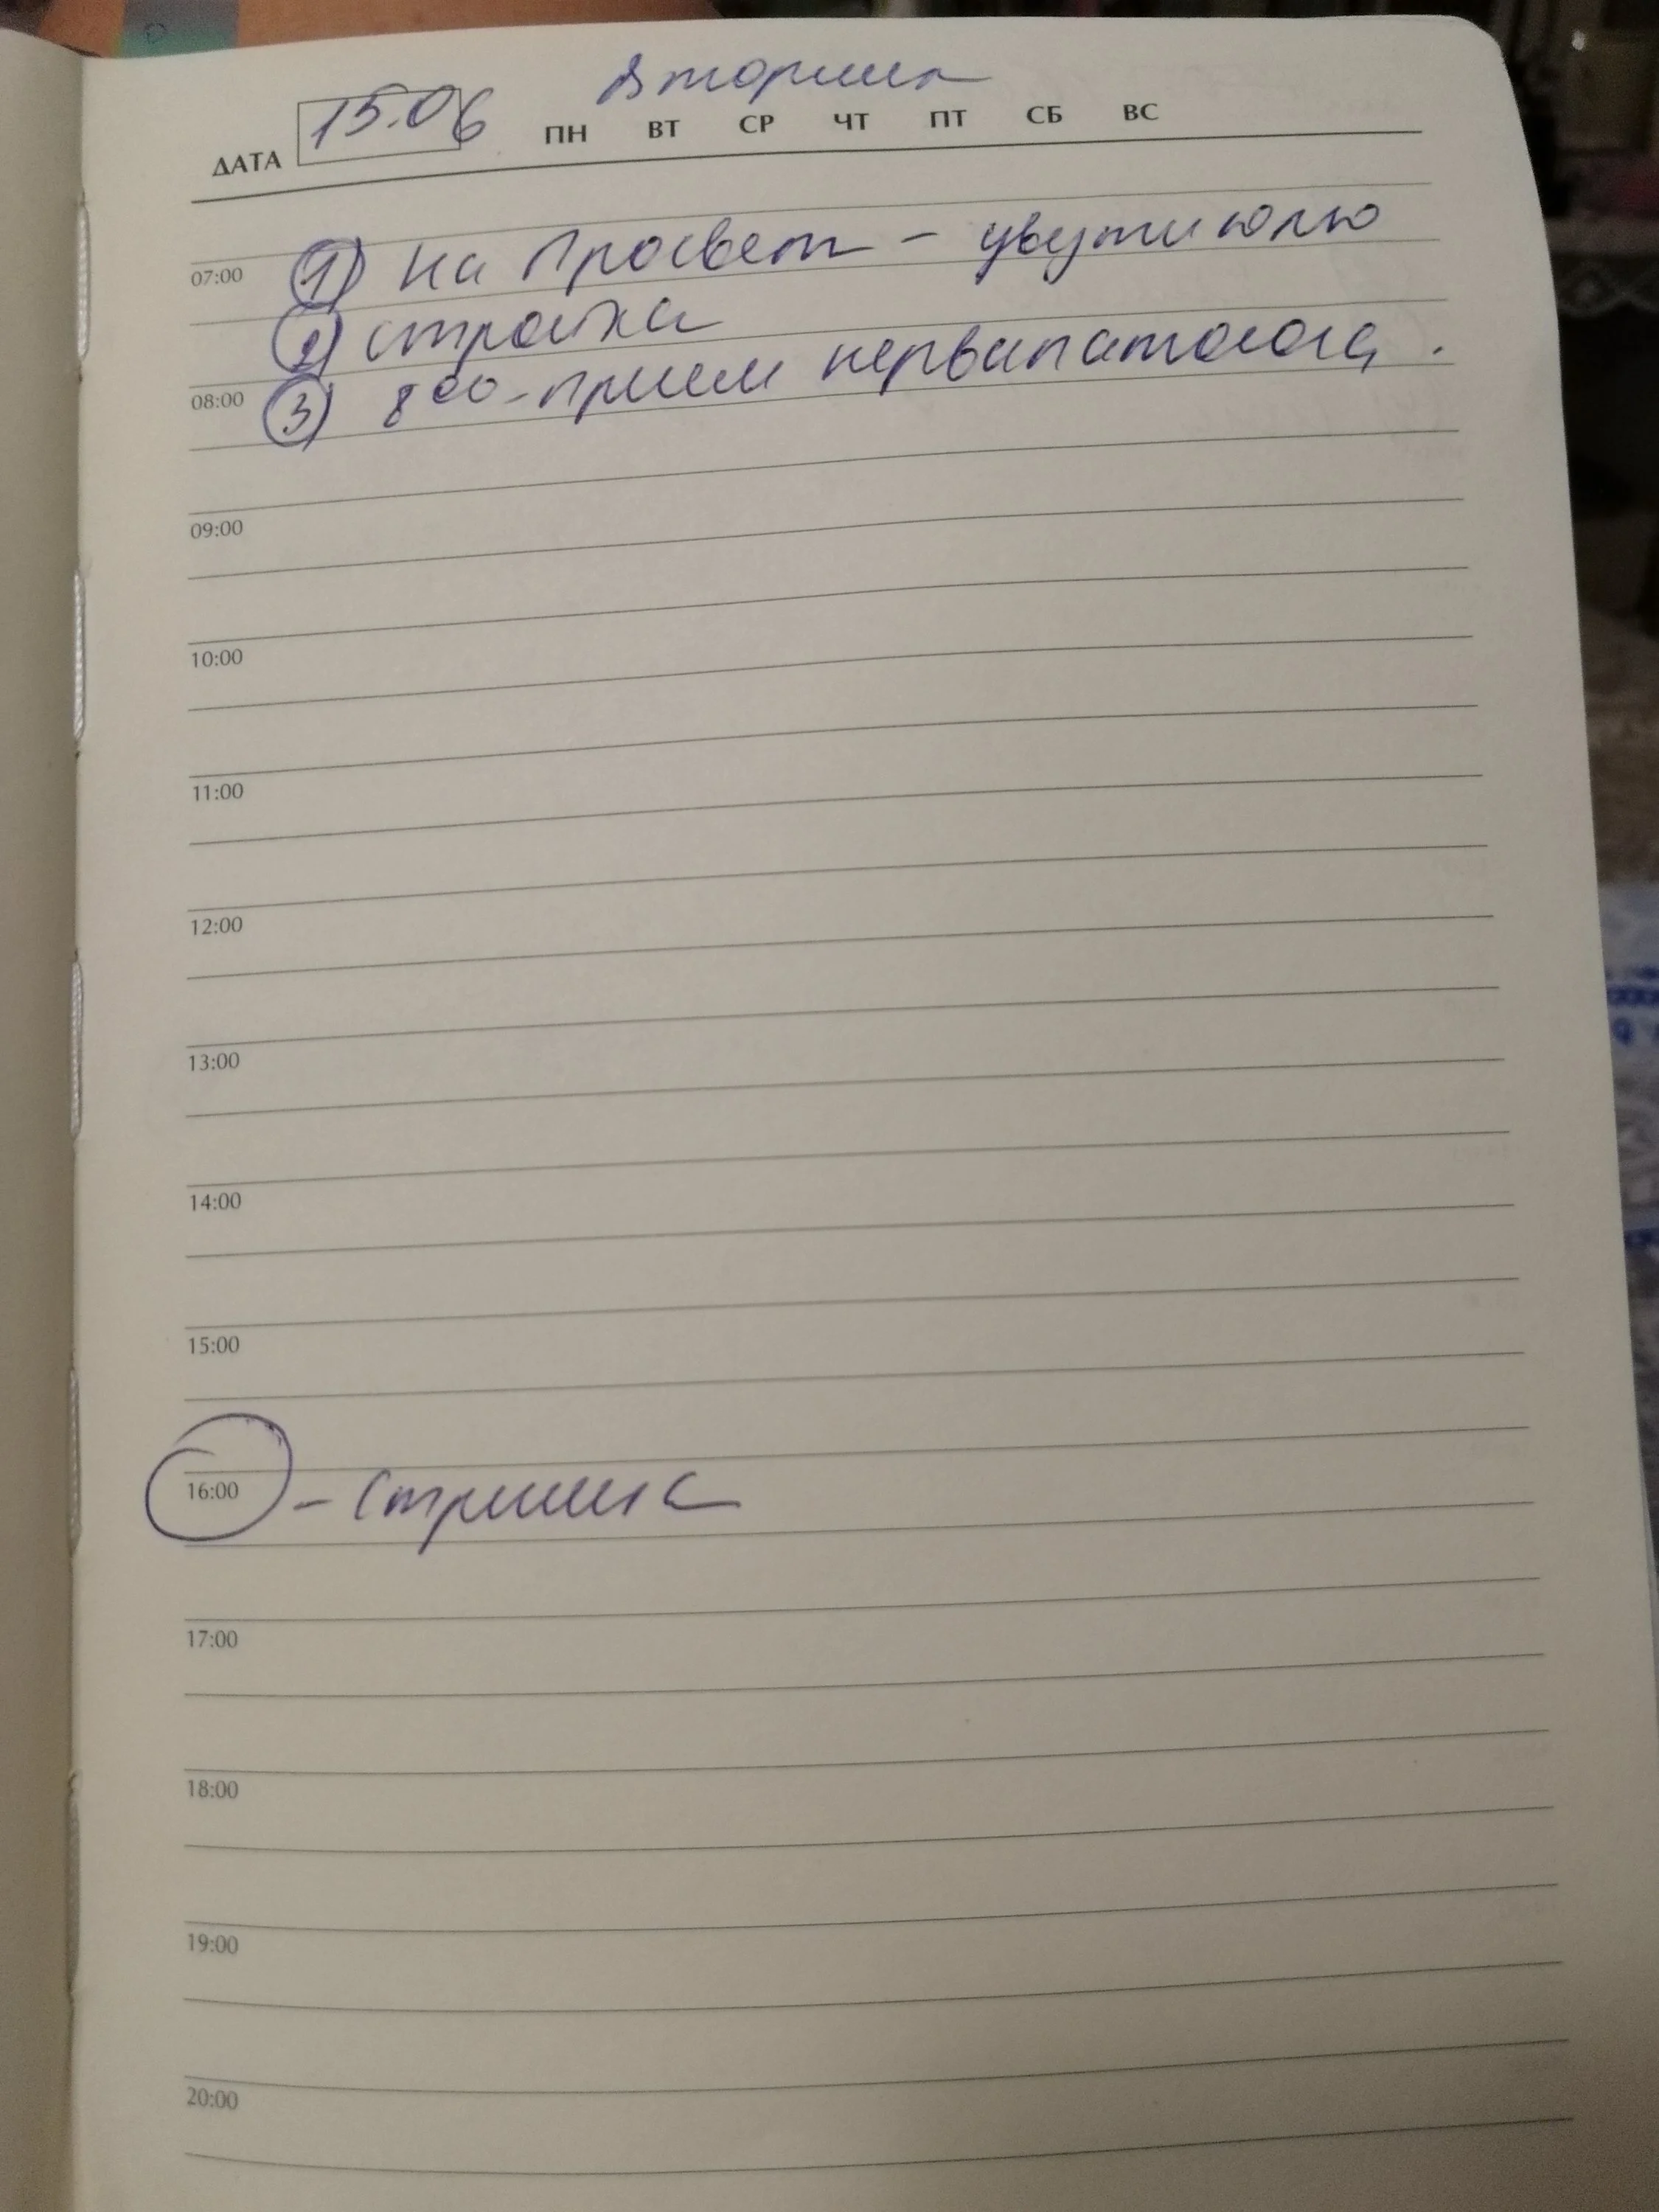 Вторник
ДАТА 15.06 ПН ВТ СР ЧТ ПТ СБ ВС
07:00 1) на Просвет -
2) стройка
08:00 3) 8 00 - прием нервапатолога.
09:00
10:00
11:00
12:00
13:00
14:00
15:00
16:00 - Стрижка
17:00
18:00
19:00
20:00